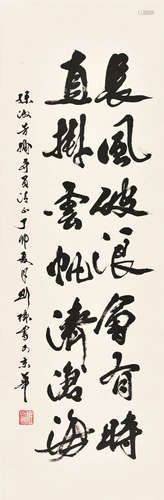 長風破浪會有時
直掛雲帆濟滄海
孫淑芳 丁卯春月劉 書於京華